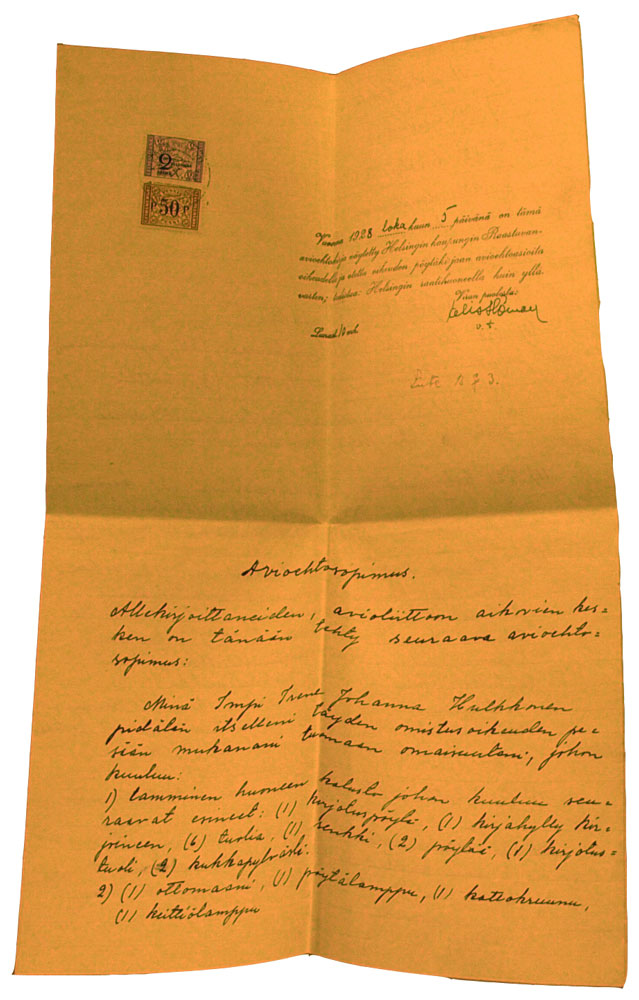 2
50
Vuonna 1928 loka kuun 5 päivänä on tämä
avioehtokirja näytetty Helsingin kaupungin Raastuvan-
oikeudelle ja otettu oikeuden pöytäkirjaan avioehtoasioista
vasten; todistaa. Helsingin raatihuoneella kuin yllä.
Viran puolesta:
v. t.
Lunast.
573.
Avioehtosopimus.
Allekirjoittaneiden, avioliittoon aikovien kes-
ken on tänään tehty seuraava avioehto-
sopimus:
Minä Impi Irene Johanna Hulkkonen
pidätän itselleni täyden omistusoikeuden pe-
sään mukanani tuomaan omaisuuteni, johon
kuuluu:
1) tamminen huoneen kalusto johon kuuluu seu-
raavat esineet: (1) kirjotuspöytä, (1) kirjahylly kir-
joineen, (6) tuolia, (1) penkki, (2) pöytää, (1) kirjotus-
tuoli, (2) kukkapylvästä.
2) (1) ottomaani, (1) pöytälamppu, (1) kattokruunu,
(1) keittiölamppu